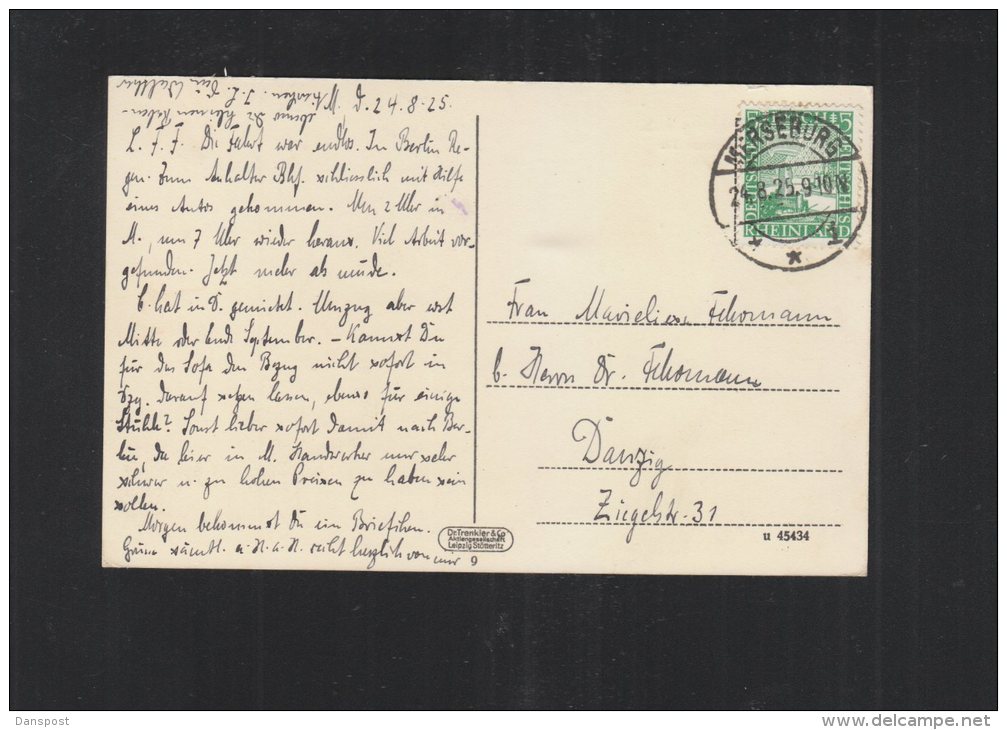 M. d. 24.8.25.
L. F. F. Die Fahrt war endlos. In Berlin Re-
gen. Zum Anhalter Bhf. schliesslich mit Hilfe
eines Autos gekommen. Um 2 Uhr in
M., um 7 Uhr wieder heraus. Viel Arbeit vor-
gefunden. Jetzt mehr als müde.
E. hat in D. gemietet. Umzug aber erst
Mitte oder Ende September. – Kannst Du
für das Sofa den Bezug nicht sofort in
Dzg. darauf setzen lassen, ebenso für einige
Stühle? Sonst lieber sofort damit nach Ber-
lin, da hier in M. Handwerker nur sehr
schwer u. zu hohen Preisen zu haben sein
sollen.
Morgen bekommst Du ein Briefchen.
Grüsse sämtl. a. H. a. H. recht herzlich von mir
ebenso die kleinen
I. L. Dein Walther
DEUTSCHES REICH 5
RHEINLAND
MERSEBURG
24.8.25.9-10N
* 1
Frau Marieliese Thomann
b. Herrn Dr. Thomann
Danzig
Ziegelstr. 31
Dr. Trenkler & Co
Aktiengesellschaft
Leipzig-Stötteritz
9
u 45434
Danspost
www.delcampe.net